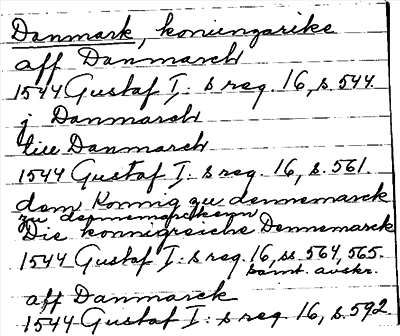 Danmark, konungarike
aff Danmarch
1544 Gustaf I: s reg. 16, s. 544.
j Danmarch
till Danmarch
1544 Gustaf I: s reg. 16, s. 561.
dem Konnig zu dennemarck
zu dennemarckenn
Die konnigreiche Dennemarck
1544 Gustaf I: s reg. 16, ss 564, 565.
samt. avskr.
aff Danmarck
1544 Gustaf I: s reg. 16, s. 592